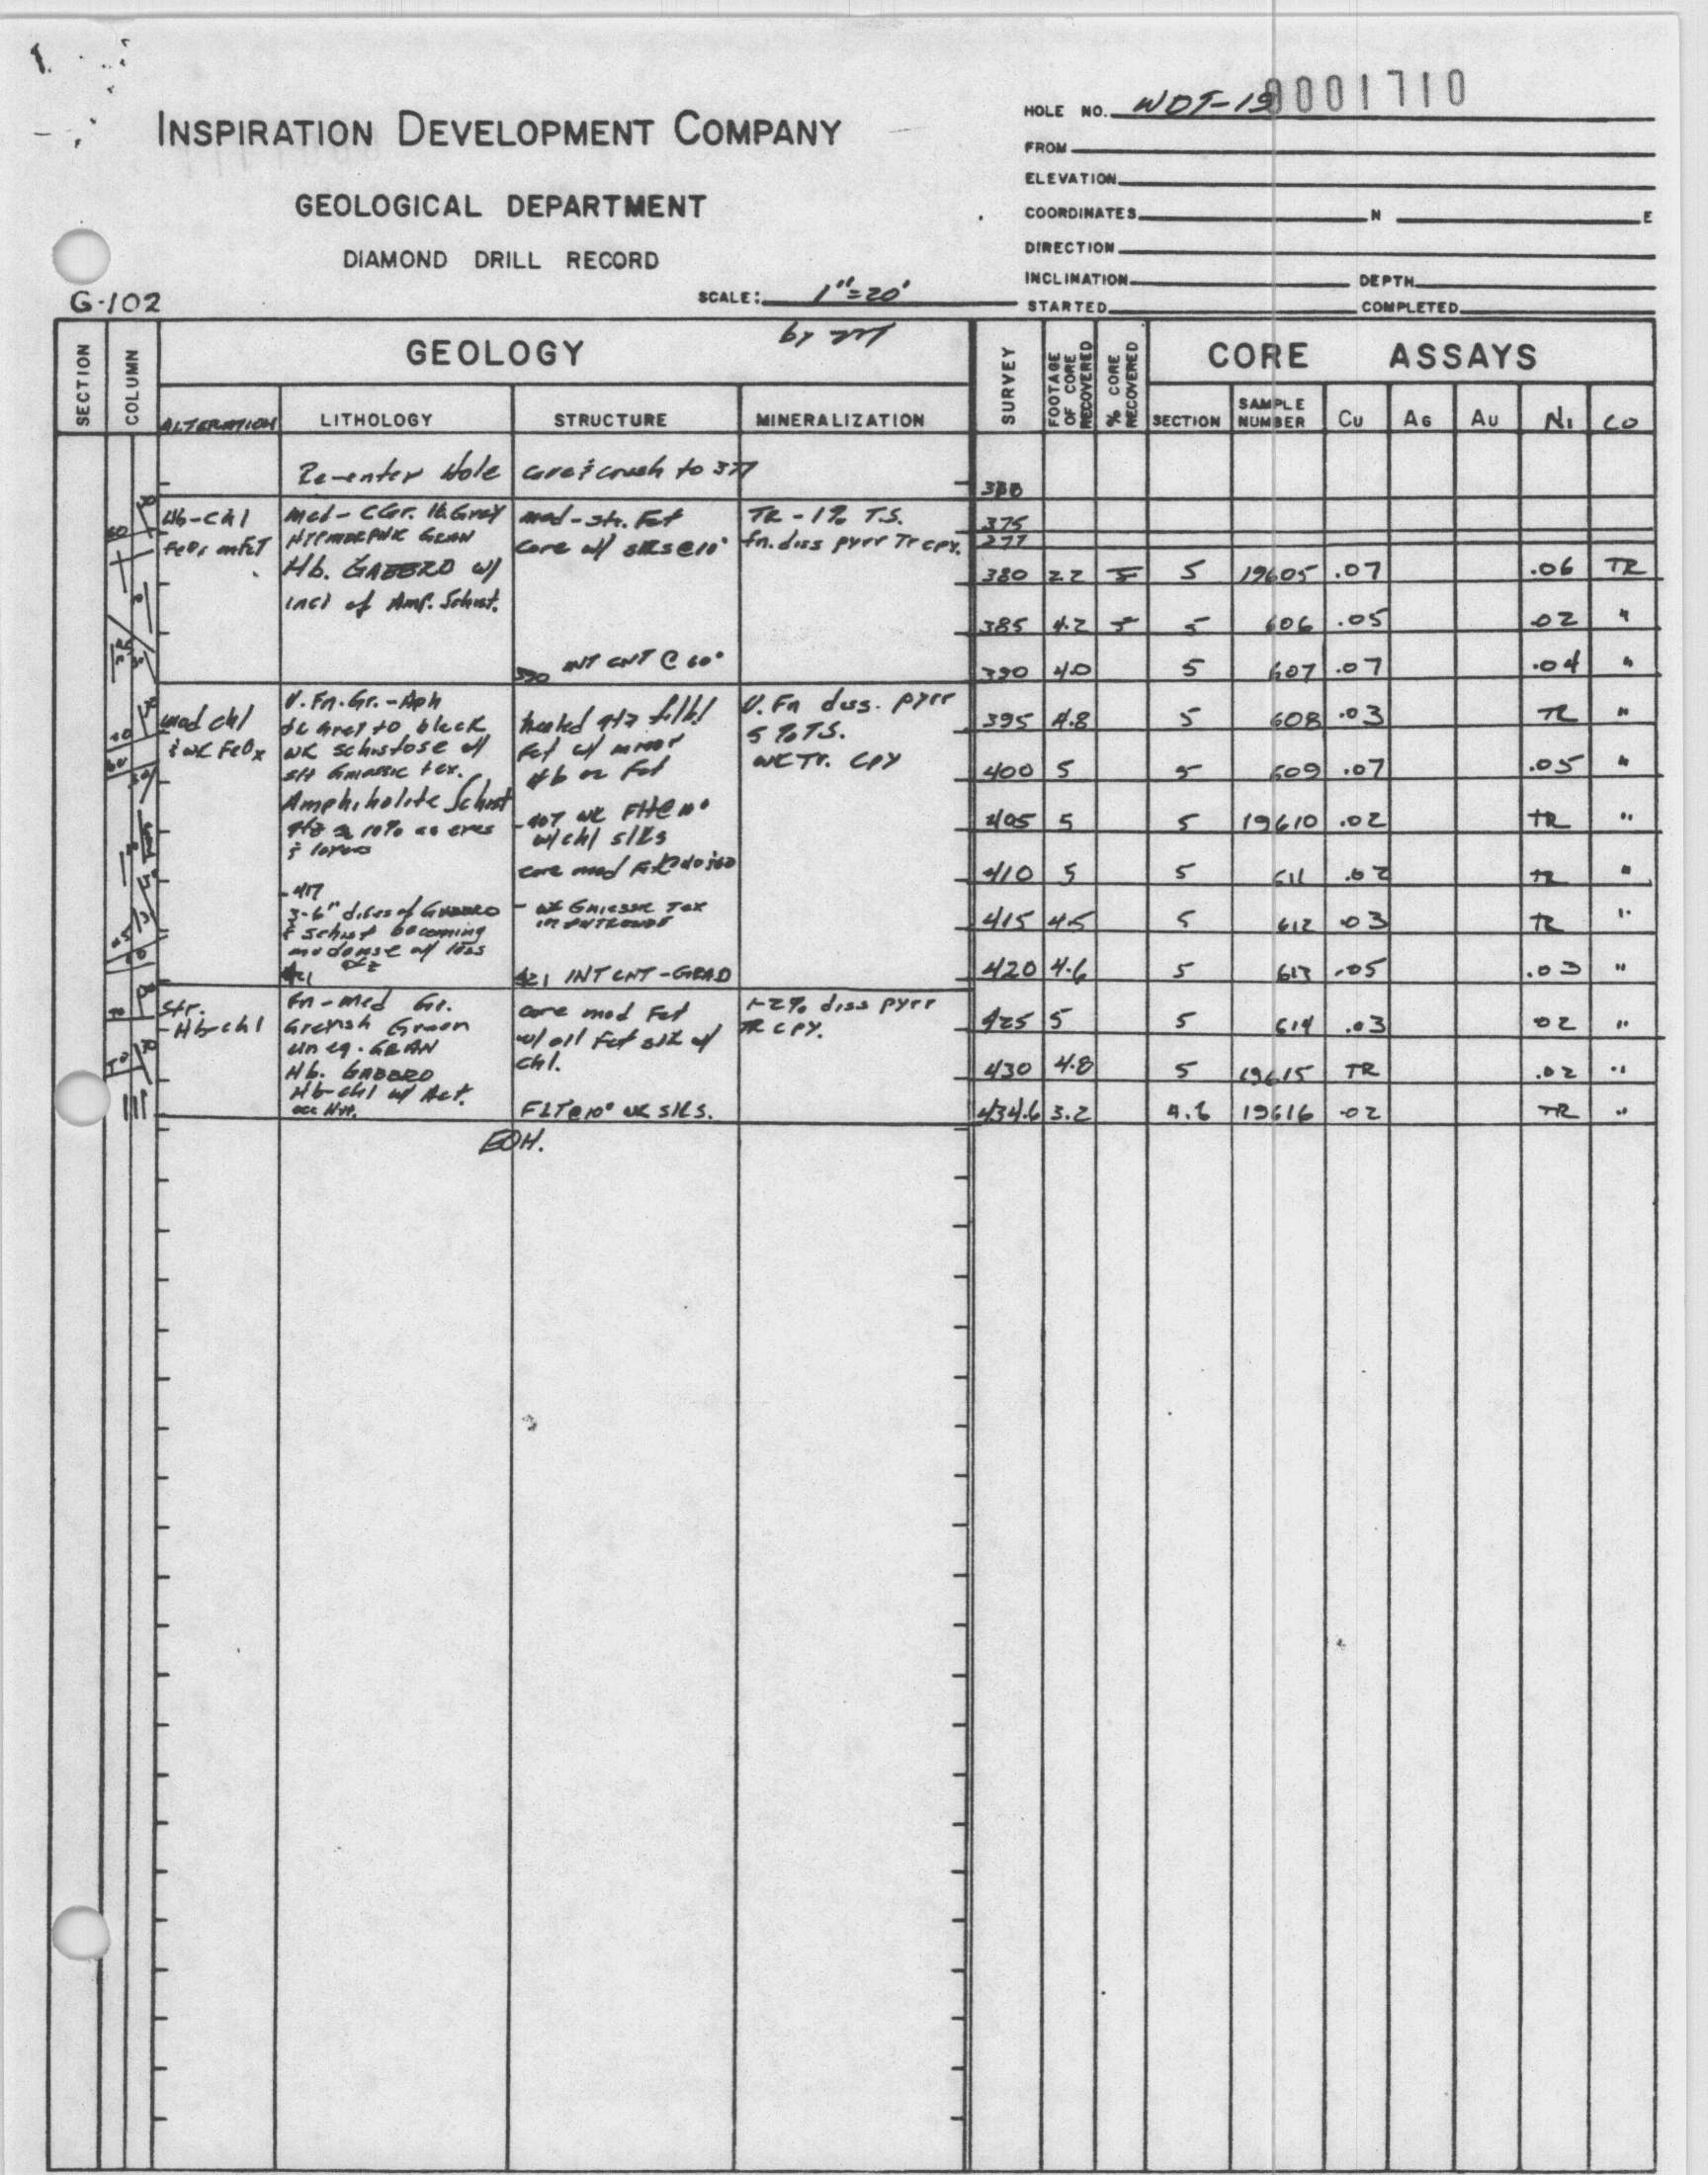 0001710
HOLE NO. WDT-19
INSPIRATION DEVELOPMENT COMPANY
FROM
ELEVATION
GEOLOGICAL DEPARTMENT
COORDINATES N E
DIRECTION
DIAMOND DRILL RECORD
INCLINATION DEPTH
SCALE: 1"=20'
STARTED COMPLETED
G-102
GEOLOGY by
SECTION
COLUMN
SURVEY
FOOTAGE OF CORE RECOVERED
% CORE RECOVERED
CORE ASSAYS
ALTERATION LITHOLOGY STRUCTURE MINERALIZATION
SECTION SAMPLE NUMBER Cu AG AU Ni CO
Re-enter Hole core & crush to 377
Hb-chl
FeOx mFcT
Med-CGr. lt. Gray
GRAN
Hb. GABBRO w/
incl of Amp. Schist.
mod-str. Fct
core w/ slks @ 10°
390 INT CNT @ 60°
TR - 1% T.S.
fn. diss pyrr Tr cpy.
mod chl
& wk FeOx
V. Fn. Gr. - Aph
dk grey to black
wk schistose w/
slt Gneissic tex.
Amphibolite Schist
qtz 10% as eyes
&
- 417
3-6" dikes of GABBRO
& schist becoming
dense w/ less
qtz
421
healed qtz
Fct w/ minor
Hb on Fct
- 407 wk Flt @ 10°
w/ chl slks
core mod Fct
- wk Gneissic Tex
in
421 INT CNT-GRAD
V. Fn diss. pyrr
5% T.S.
wk Tr. cpy
Str.
- Hb-chl
Fn-med Gr.
Greyish Green
un eq. GRAN
Hb. GABBRO
Hb-chl w/ Act.
core mod Fct
w/ all Fct slk w/
chl.
FLT @ 10° wk slks.
1-2% diss pyrr
TR cpy.
EOH.
375
377
380 2.2 5 5 19605 .07 .06 TR
385 4.2 5 5 606 .05 .02 "
390 4.0 5 607 .07 .04 "
395 4.8 5 608 .03 TR "
400 5 5 609 .07 .05 "
405 5 5 19610 .02 TR "
410 5 5 611 .02 TR "
415 4.5 5 612 .03 TR "
420 4.6 5 613 .05 .03 "
425 5 5 614 .03 02 "
430 4.8 5 19615 TR .02 "
434.6 3.2 4.6 19616 .02 TR "